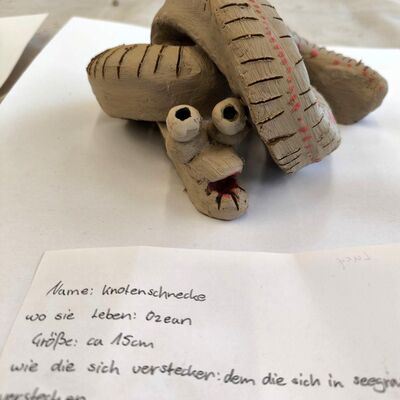 Lucy
Name: Knotenschnecke
wo sie leben: Ozean
Größe: ca 15cm
wie die sich verstecker: dem die sich in seegra
verstecken